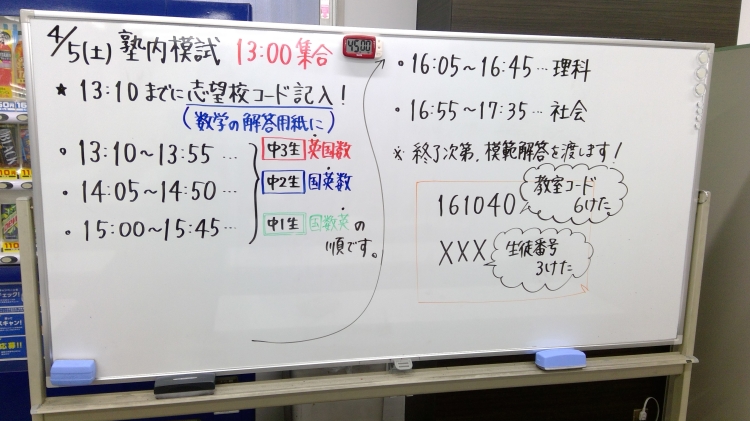 4/5(土) 塾内模試 13:00集合
45:00
★ 13:10までに志望校コード記入!
(数学の解答用紙に)
• 13:10～13:55 … 中3生 英国数
• 14:05～14:50 … 中2生 国英数
• 15:00～15:45 … 中1生 国数英の
順です。
• 16:05～16:45 … 理科
• 16:55～17:35 … 社会
※ 終了次第、模範解答を渡します!
161040 教室コード
6けた
XXX 生徒番号
3けた